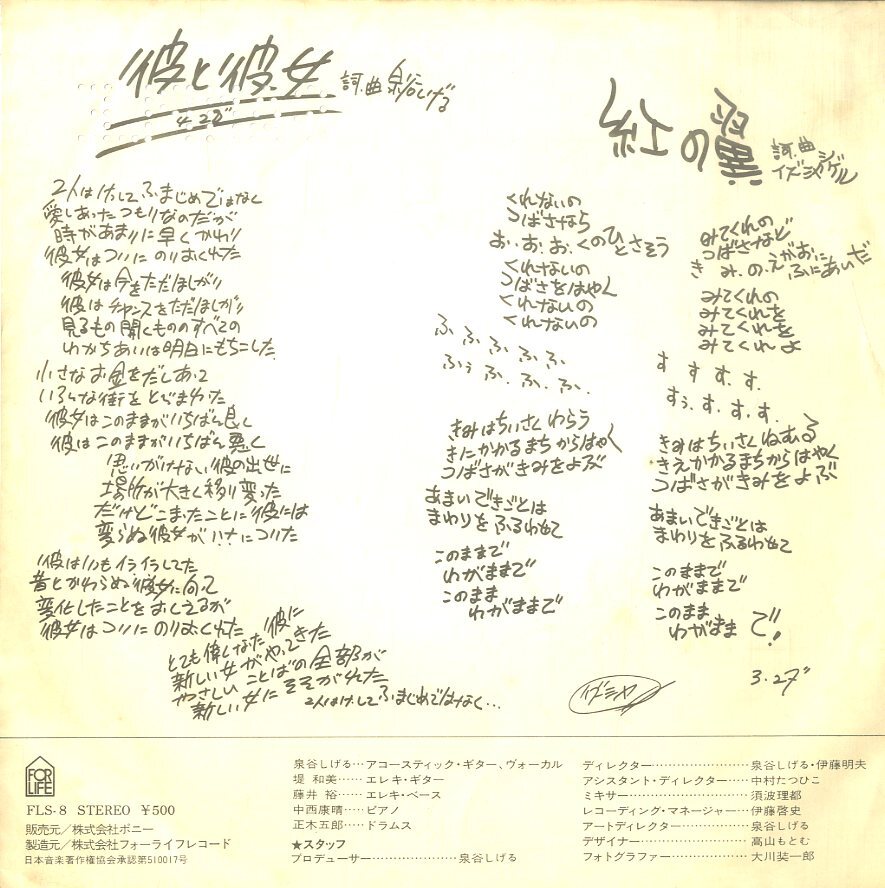 彼と彼女
詞.曲 泉谷しげる
4.22"
2人はけっしてふまじめではなく
愛しあったつもりなのだが
時があまりに早くかわり
彼女はついにのりおくれた
彼女は今をただほしがり
彼はチャンスをただほしがり
見るもの聞くもののすべての
わかちあいは明日にもちこした
小さなお金をだしあって
いろんな街をとびまわった
彼女はこのままがいちばん良く
彼はこのままがいちばん悪く
思いがけない彼の出世に
場所が大きく移り変った
だけどこまったことに彼には
変らぬ彼女がハナについた
彼はいつもイライラしてた
昔とかわらぬ彼女に向って
変化したことをおしえるが
彼女はついにのりおくれた
とても偉くなった彼に
新しい女がやってきた
やさしいことばの全部が
新しい女にそそがれた
2人はけっしてふまじめではなく…
紅の翼
詞.曲 イズミヤシゲル
くれないの
つばさなら
お.お.お.くのひとさそう
くれないの
つばさをはやく
くれないの
くれないの
ふ ふ ふ ふ ふ
ふぅ ふ. ふ. ふ.
きみはちいさくわらう
きにかかるまちからはやく
つばさがきみをよぶ
あまいできごとは
まわりをふるわせて
このままで
わがままで
このまま
わがままで
みてくれの
つばさなど
き み.の.えがおに
ふにあいだ
みてくれの
みてくれを
みてくれを
みてくれよ
す す す. す.
すぅ. す. す. す.
きみはちいさくねむる
きえかかるまちからはやく
つばさがきみをよぶ
あまいできごとは
まわりをふるわせて
このままで
わがままで
このまま
わがまま で!
3.27"
イズミヤ
FOR
LIFE
FLS-8 STEREO ¥500
販売元/株式会社ポニー
製造元/株式会社フォーライフレコード
日本音楽著作権協会承認第510017号
泉谷しげる…アコースティック・ギター、ヴォーカル
堤 和美……エレキ・ギター
藤井 裕……エレキ・ベース
中西康晴……ピアノ
正木五郎……ドラムス
★スタッフ
プロデューサー……………………泉谷しげる
ディレクター……………………泉谷しげる・伊藤明夫
アシスタント・ディレクター……中村たつひこ
ミキサー……………………須波理都
レコーディング・マネージャー…伊藤啓史
アートディレクター……………泉谷しげる
デザイナー……………………高山もとむ
フォトグラファー………………大川装一郎